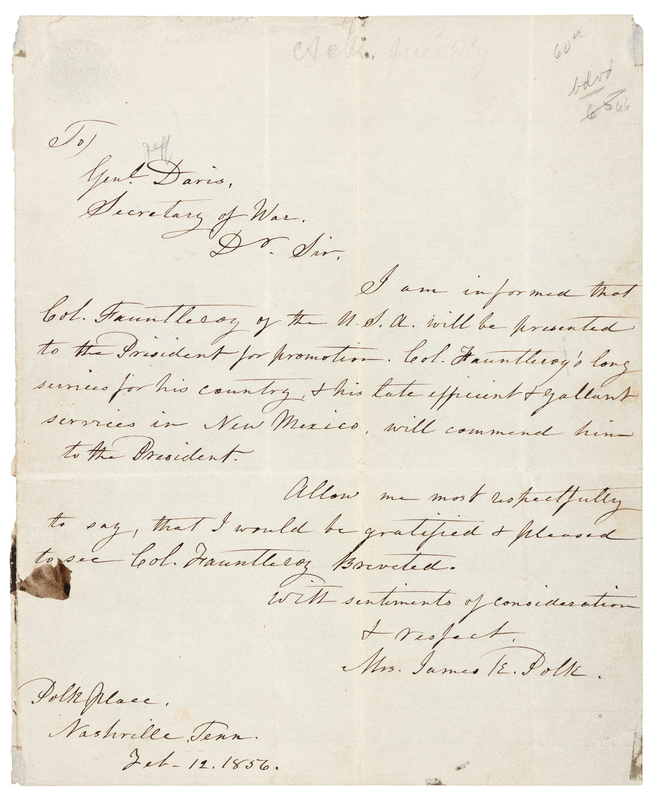 60 a
bdvd
To)
Jeff
Genl. Davis,
Secretary of War.
Dr. Sir,
I am informed that
Col. Fauntleroy of the U.S.A. will be presented
to the President for promotion. Col. Fauntleroy's long
services for his country, & his late efficient & gallant
services in New Mexico, will commend him
to the President.
Allow me most respectfully
to say, that I would be gratified & pleased
to see Col. Fauntleroy Breveted.
With sentiments of consideration
& respect.
Mrs. James K. Polk.
Polk place,
Nashville, Tenn.
Feb- 12. 1856.